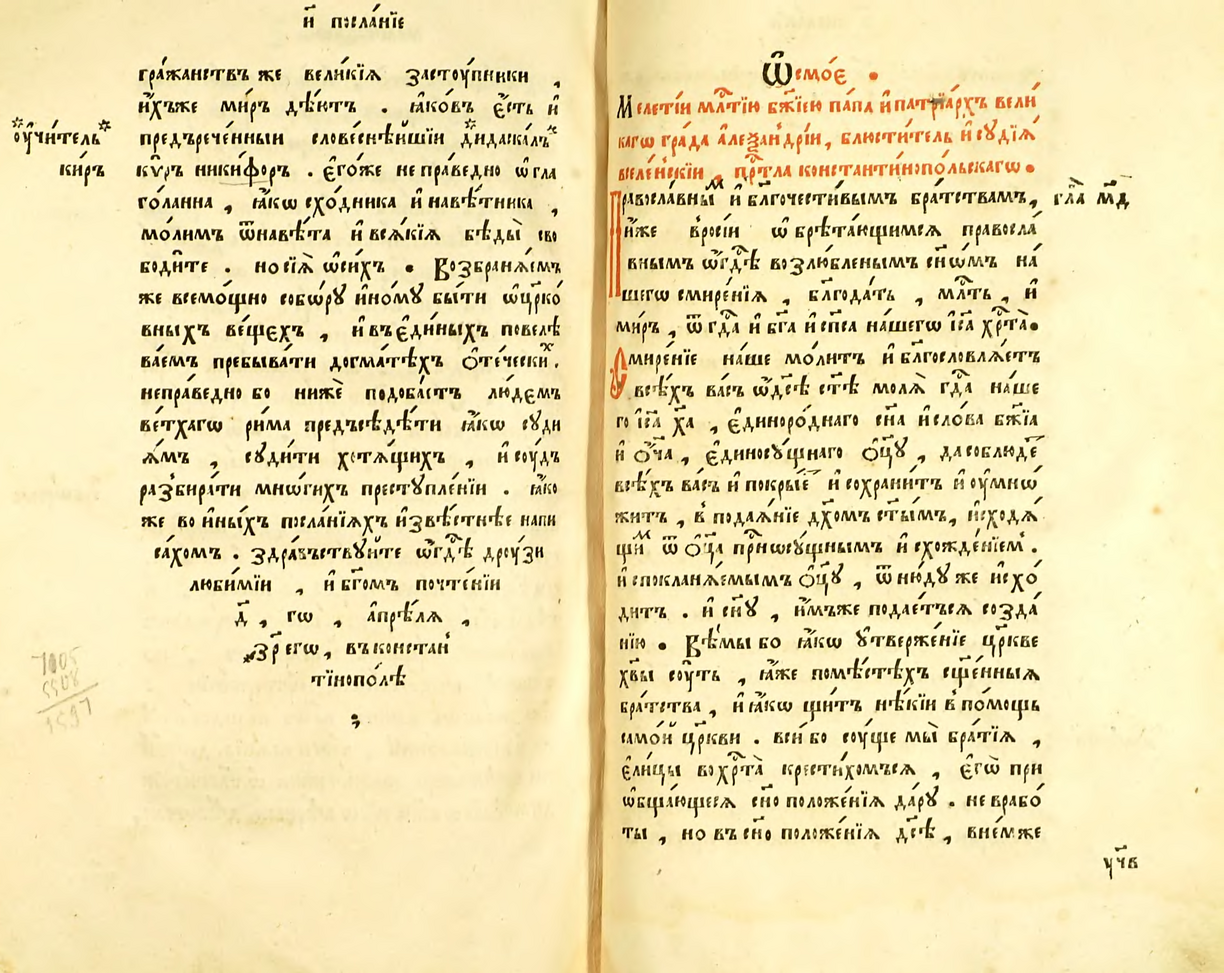 и҃ посла́нїе
гра́жанствъ же вели́кїѧ застоу́пники ,
и҆́хъже ми́ръ дѣ́ютъ . ꙗ҆́ковъ є҆́сть и҆
преⷣърече́нныи слове́снѣйшїи * дидаска́лъ *
* оу҆чи́тель *
ки́ръ
кѵ́ръ ники́форъ . є҆го́же непра́ведно ѡ҆гла
го́ланна , ꙗ҆́кѡ схо́дника и҆ навѣ́тника ,
мо́лимъ ѿ навѣ́та и҆ всѧ́кїѧ бѣды̀ сво
боди́те . но сїѧ̀ ѡ҆си́хъ . Возбранѧ́емъ
же всемо́щно собо́ру и҆но́му бы́ти ѡ҆ цр҃ко́
вныхъ ве́щехъ , и҆ въ є҆ди́ныхъ повелѣ
ва́емъ пребыва́ти догма́тѣхъ ѻ҆те́ческиⷯ .
непра́ведно бо нижѐ подоба́етъ лю́демъ
ве́тхагѡ ри́ма предъсѣдѣ́ти ꙗ҆́кѡ суди
ѧ́мъ , суди́ти хотѧ́щихъ , и҆ соу́дъ
разбира́ти мнѡ́гихъ преступле́нїи . ꙗ҆́ко
же во и҆ны́хъ посла́нїѧхъ и҆звѣ́стнѣе напи
са́хомъ . здра́въствуйте ѡ҆ гдⷭ҇ѣ дроу́зи
люби́мїи , и҆ бг҃омъ почте́нїи
д҃ , гѡ , а҆прѣ́лѧ ,
҂зр҃е гѡ , въ конста́н
тїнопо́лѣ
7105
5508
1597
Ѿсмо́е .
Меле́тїи млⷭ҇тїю бж҃їею па́па и҆ патрїа́рхъ вели́
кагѡ гра́да а҆леѯа́ндрїи , блюсти́тель и҆ судїѧ̀
вселе́нскїи , прⷭ҇тла константинопо́льскагѡ .
Правосла́вныⷨ и҆ благочести́вымъ бра́тствамъ ,
гла҃ м҃д
и҆́же в росі́и ѡ҆брѣта́ющимсѧ правосла́
внымъ ѡ҆ гдⷭ҇ѣ возлю́бленымъ сн҃ѡ́мъ на́
шегѡ смире́нїѧ , блг҃ода́ть , млⷭ҇ть , и҆
ми́ръ , ѿ гдⷭ҇а и҆ бг҃а и҆ сп҃са на́шегѡ і҆с҃а хрⷭ҇та̀ .
Смире́нїе на́ше мо́литъ и҆ благословлѧ́етъ
всѣ́хъ ва́съ ѡ҆ дс҃ѣ ст҃ѣ молѧ̀ гдⷭ҇а на́ше
го і҆с҃а х҃а , є҆диноро́днаго сн҃а и҆ сло́ва бж҃їа
и҆ ѻ҆́ч҃а , є҆диносу́щнаго ѻ҆ц҃у̀ , да соблюде́ⷮ
всѣ́хъ ва́съ и҆ покры́еⷮ и҆ сохрани́тъ и҆ оу҆мнѡ́
житъ , в подаѧ́нїе дх҃омъ ст҃ымъ , и҆сходѧ́
щиⷨ ѿ ѻ҆ц҃а̀ при́сносу́щнымъ и҆схожде́нїемъ .
и҆ спокланѧ́емымъ ѻ҆ц҃у̀ , ѿню́ду же и҆схо́
дитъ . и҆ сн҃у , и҆́мъже подае́тъсѧ созда́
нїю . Вѣ́мы бо ꙗ҆́кѡ у҆твержє́нїе цр҃кве
хв҃ы соу́ть , ꙗ҆́же по мѣ́стѣхъ сщ҃е́нныѧ
бра́тства , и҆ ꙗ҆́кѡ щи́тъ нѣ́кїи в по́мощь
само́й цр҃кви . вси́ бо соу́ще мы̀ бра́тїѧ ,
є҆ли́цы во хрⷭ҇та̀ крести́хомъсѧ , є҆гѡ̀ при
ѡ҆бща́ющесѧ сн҃оположе́нїѧ да́ру . не в рабо́
ты , но въ сн҃оположе́нїѧ дс҃ѣ , в не́мже
уч҃в